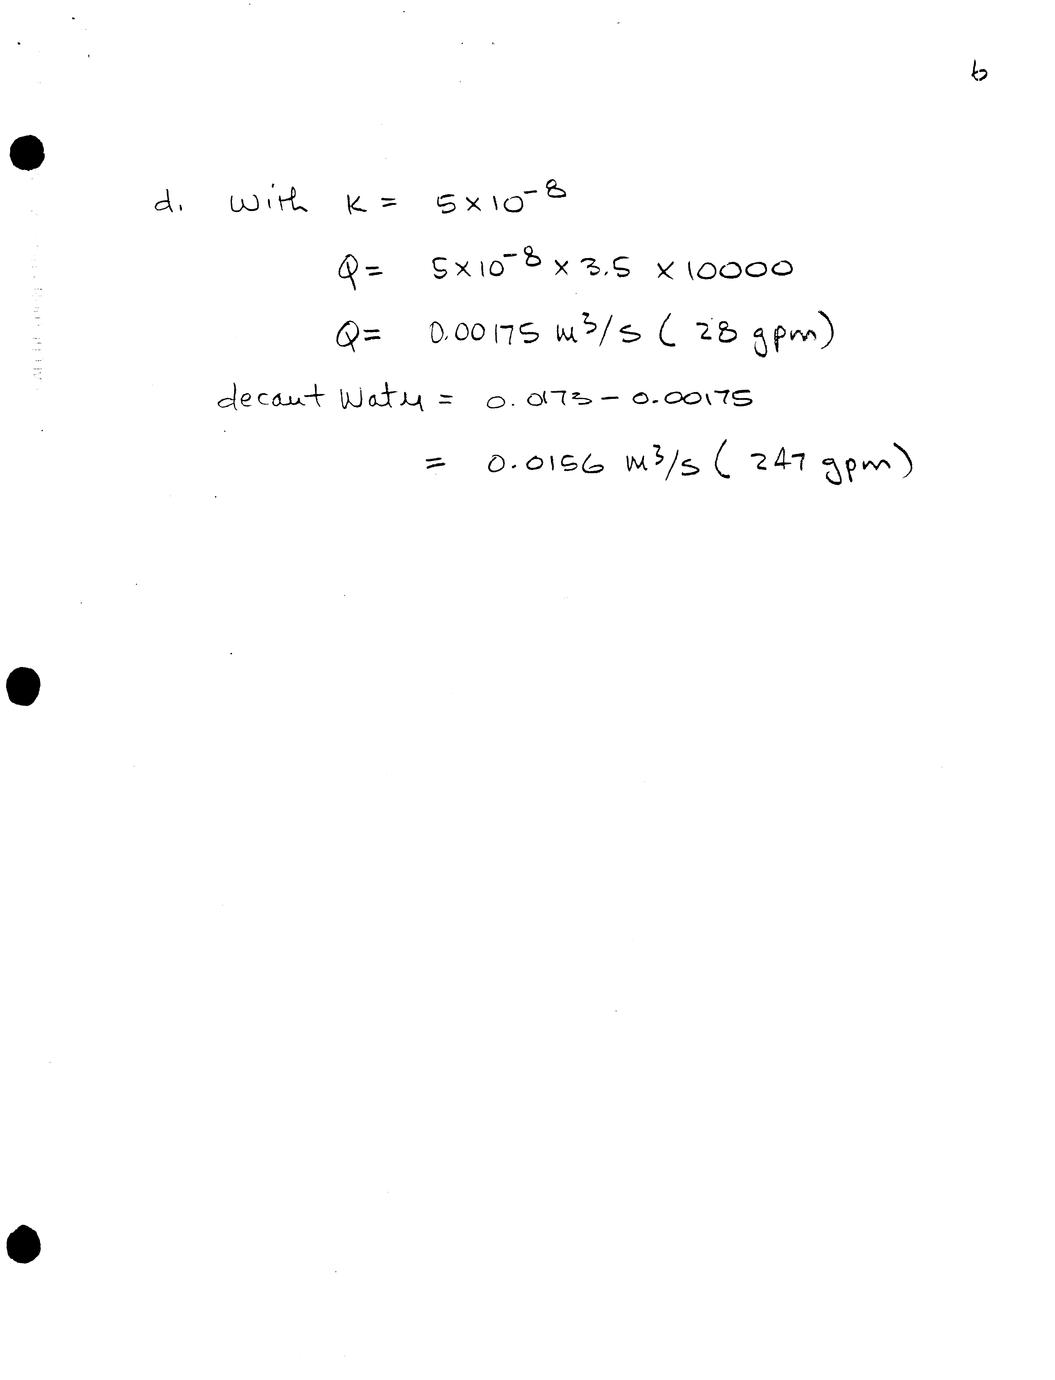 6
d. With K = 5×10⁻⁸
Q = 5×10⁻⁸ × 3.5 × 10000
Q = 0.00175 m³/s (28 gpm)
decant Water = 0.0173 - 0.00175
= 0.0156 m³/s (247 gpm)